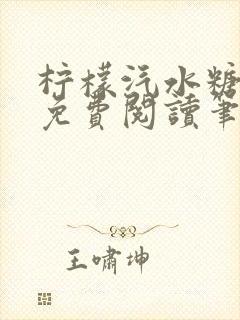 柠檬汽水糖
免費閱讀筆
王嘯坤